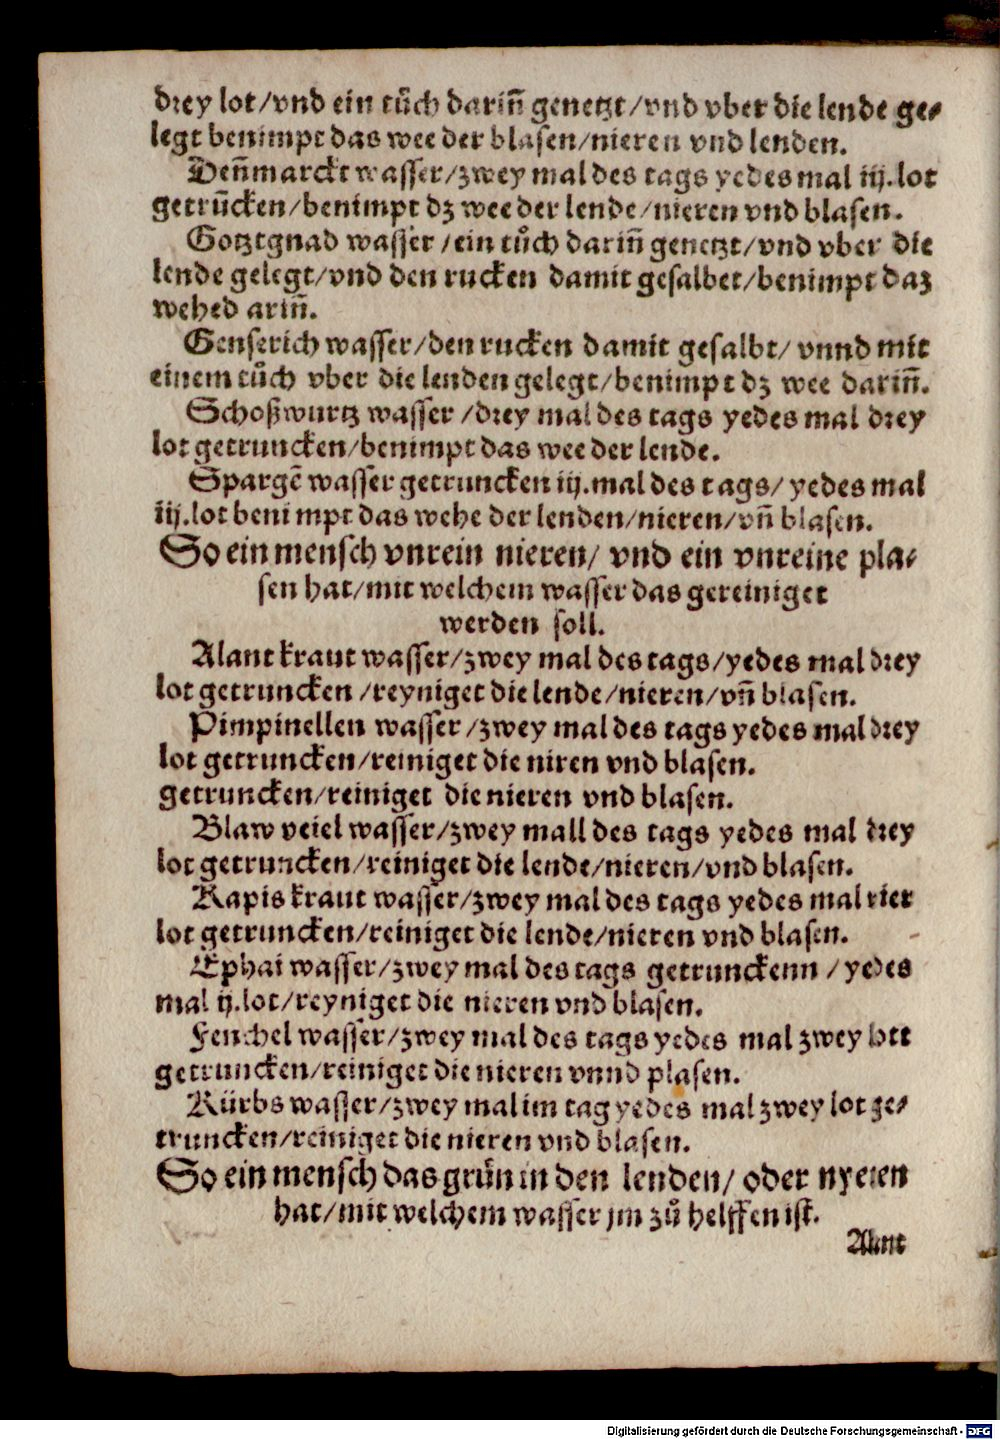 drey lot/vnd ein tůch dariñ genetzt/vnd vber die lende ge⸗
legt benimpt das wee der blasen/nieren vnd lenden.
Deñmarckt wasser/zwey mal des tags yedes mal iij.lot
getrũcken/benimpt dz wee der lende/nieren vnd blasen.
Gotztgnad wasser/ein tůch dariñ genetzt/vnd vber die
lende gelegt/vnd den rucken damit gesalbet/benimpt daz
wehed ariñ.
Genserich wasser/den rucken damit gesalbt/ vnnd mit
einem tůch vber die lenden gelegt/benimpt dz wee dariñ.
Schoßwurtz wasser/drey mal des tags yedes mal drey
lot getruncken/benimpt das wee der lende.
Spargẽ wasser getruncken iij.mal des tags/ yedes mal
iij.lot benimpt das wehe der lenden/nieren/vñ blasen.
So ein mensch vnrein nieren/ vnd ein vnreine pla⸗
sen hat/mit welchem wasser das gereiniget
werden soll.
Alant kraut wasser/zwey mal des tags/yedes mal drey
lot getruncken/reyniget die lende/nieren/vñ blasen.
Pimpinellen wasser/zwey mal des tags yedes mal drey
lot getruncken/reiniget die niren vnd blasen.
getruncken/reiniget die nieren vnd blasen.
Blaw veiel wasser/zwey mall des tags yedes mal drey
lot getruncken/reiniget die lende/nieren/vnd blasen.
Rapis kraut wasser/zwey mal des tags yedes mal vier
lot getruncken/reiniget die lende/nieren vnd blasen.
Ephai wasser/zwey mal des tags getrunckenn/yedes
mal ij.lot/reyniget die nieren vnd blasen.
Fenchel wasser/zwey mal des tags yedes mal zwey lott
getruncken/reiniget die nieren vnnd plasen.
Kürbs wasser/zwey mal im tag yedes mal zwey lot ge⸗
truncken/reiniget die nieren vnd blasen.
So ein mensch das grůn in den lenden/ oder nyeren
hat/mit welchem wasser jm zů helffen ist.
Alant
Digitalisierung gefördert durch die Deutsche Forschungsgemeinschaft - DFG